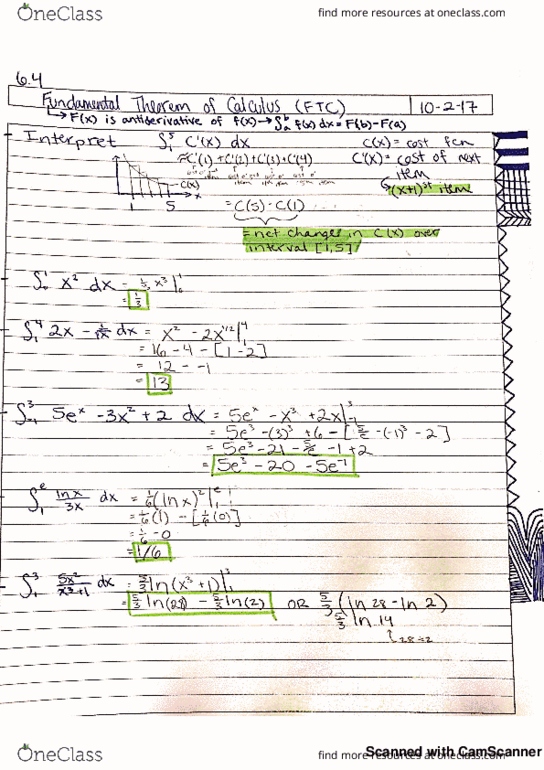 OneClass
find more resources at oneclass.com
6.4
Fundamental Theorem of Calculus (FTC) 10-2-17
↳ F(x) is antiderivative of f(x) → ∫ₐᵇ f(x) dx = F(b) - F(a)
Interpret ∫₁⁵ C'(x) dx C(x) = cost fcn
≈ C'(1) + C'(2) + C'(3) + C'(4) C'(x) = cost of next
item
(x+1)ˢᵗ item
C(x)
x
1 5
= C(5) - C(1)
= net changes in C(x) over
interval [1,5]
∫₀¹ x² dx = ⅓x³|₀¹
= ⅓
∫₁⁴ 2x - 1/√x dx = x² - 2x^(1/2)|₁⁴
= 16 - 4 - [1 - 2]
= 12 - -1
= 13
∫₋₁³ 5eˣ - 3x² + 2 dx = 5eˣ - x³ + 2x|₋₁³
= 5e³ - (3)³ + 6 - [5/e - (-1)³ - 2]
= 5e³ - 21 - 5/e - 1 + 2
= 5e³ - 20 - 5e⁻¹
∫₁ᵉ lnx/3x dx = 1/6 (ln x)²|₁ᵉ
= 1/6(1) - [1/6(0)]
= 1/6 - 0
= 1/6
∫₁³ 5x²/x³+1 dx = 5/3 ln(x³+1)|₁³
= 5/3 ln(28) - 5/3 ln(2) OR 5/3 (ln 28 - ln 2)
5/3 ln 14
28÷2
OneClass
find more resources at oneclass.com
Scanned with CamScanner